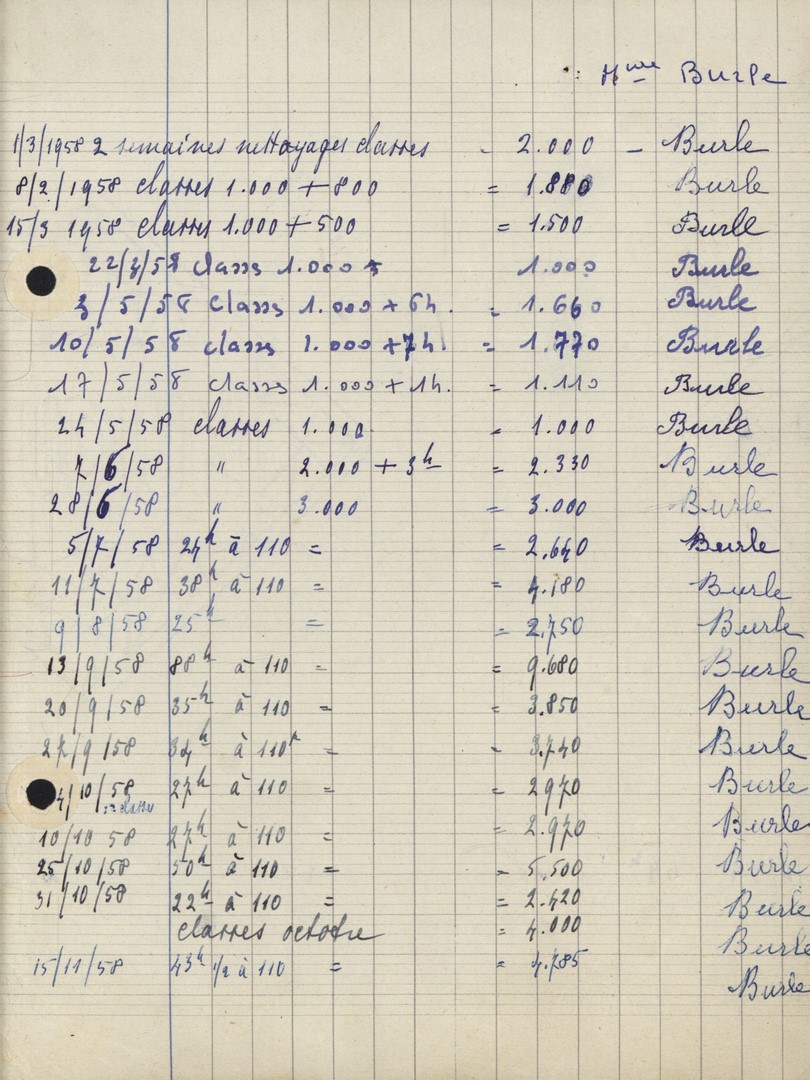 Mme Burle
1/3/1958 2 semaines nettoyages classes - 2.000 - Burle
8/2/1958 classes 1.000 + 800 = 1.880 Burle
15/3 1958 classes 1.000 + 500 = 1.500 Burle
22/3/58 classs 1.000 1.000 Burle
3/5/58 classs 1.000 + 6h. = 1.660 Burle
10/5/58 classs 1.000 + 7h. = 1.770 Burle
17/5/58 classs 1.000 + 1h. = 1.110 Burle
24/5/58 classes 1.000 = 1.000 Burle
7/6/58 " 2.000 + 3h = 2.330 Burle
28/6/58 " 3.000 = 3.000 Burle
5/7/58 24h à 110 = = 2.640 Burle
11/7/58 38h à 110 = = 4.180 Burle
9/8/58 25h = = 2.750 Burle
13/9/58 88h à 110 = = 9.680 Burle
20/9/58 35h à 110 = = 3.850 Burle
27/9/58 34h à 110 = - 3.740 Burle
4/10/58 27h à 110 = = 2970 Burle
classes
10/10 58 27h à 110 = = 2.970 Burle
25/10/58 50h à 110 = = 5.500 Burle
31/10/58 22h à 110 = = 2.420 Burle
classes octobre = 4.000 Burle
15/11/58 43h 1/2 à 110 = = 4.785 Burle